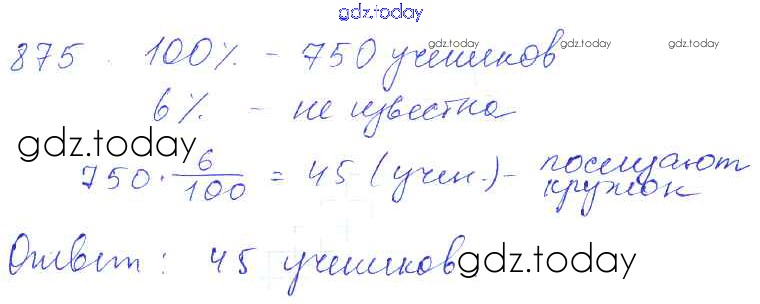 gdz.today
875. 100% - 750 учеников
gdz.today gdz.today
6% - не известна
gdz.today
750 · 6/100 = 45 (учен.) - посещают кружок
Ответ: 45 учеников
gdz.today